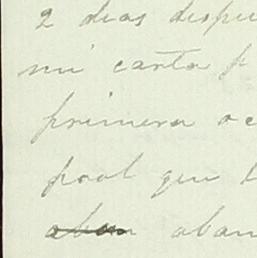 2 dias despu
mi carta p
primera oc
pool que
aban